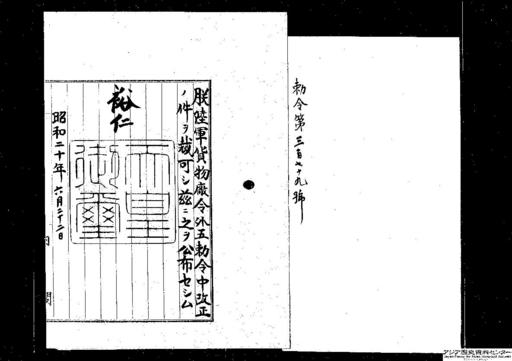 勅令第三百七十九號
朕陸軍貨物廠令外五勅令中改正
ノ件ヲ裁可シ茲ニ之ヲ公布セシム
裕仁
天皇御璽
昭和二十年六月二十二日
内閣
アジア歴史資料センター